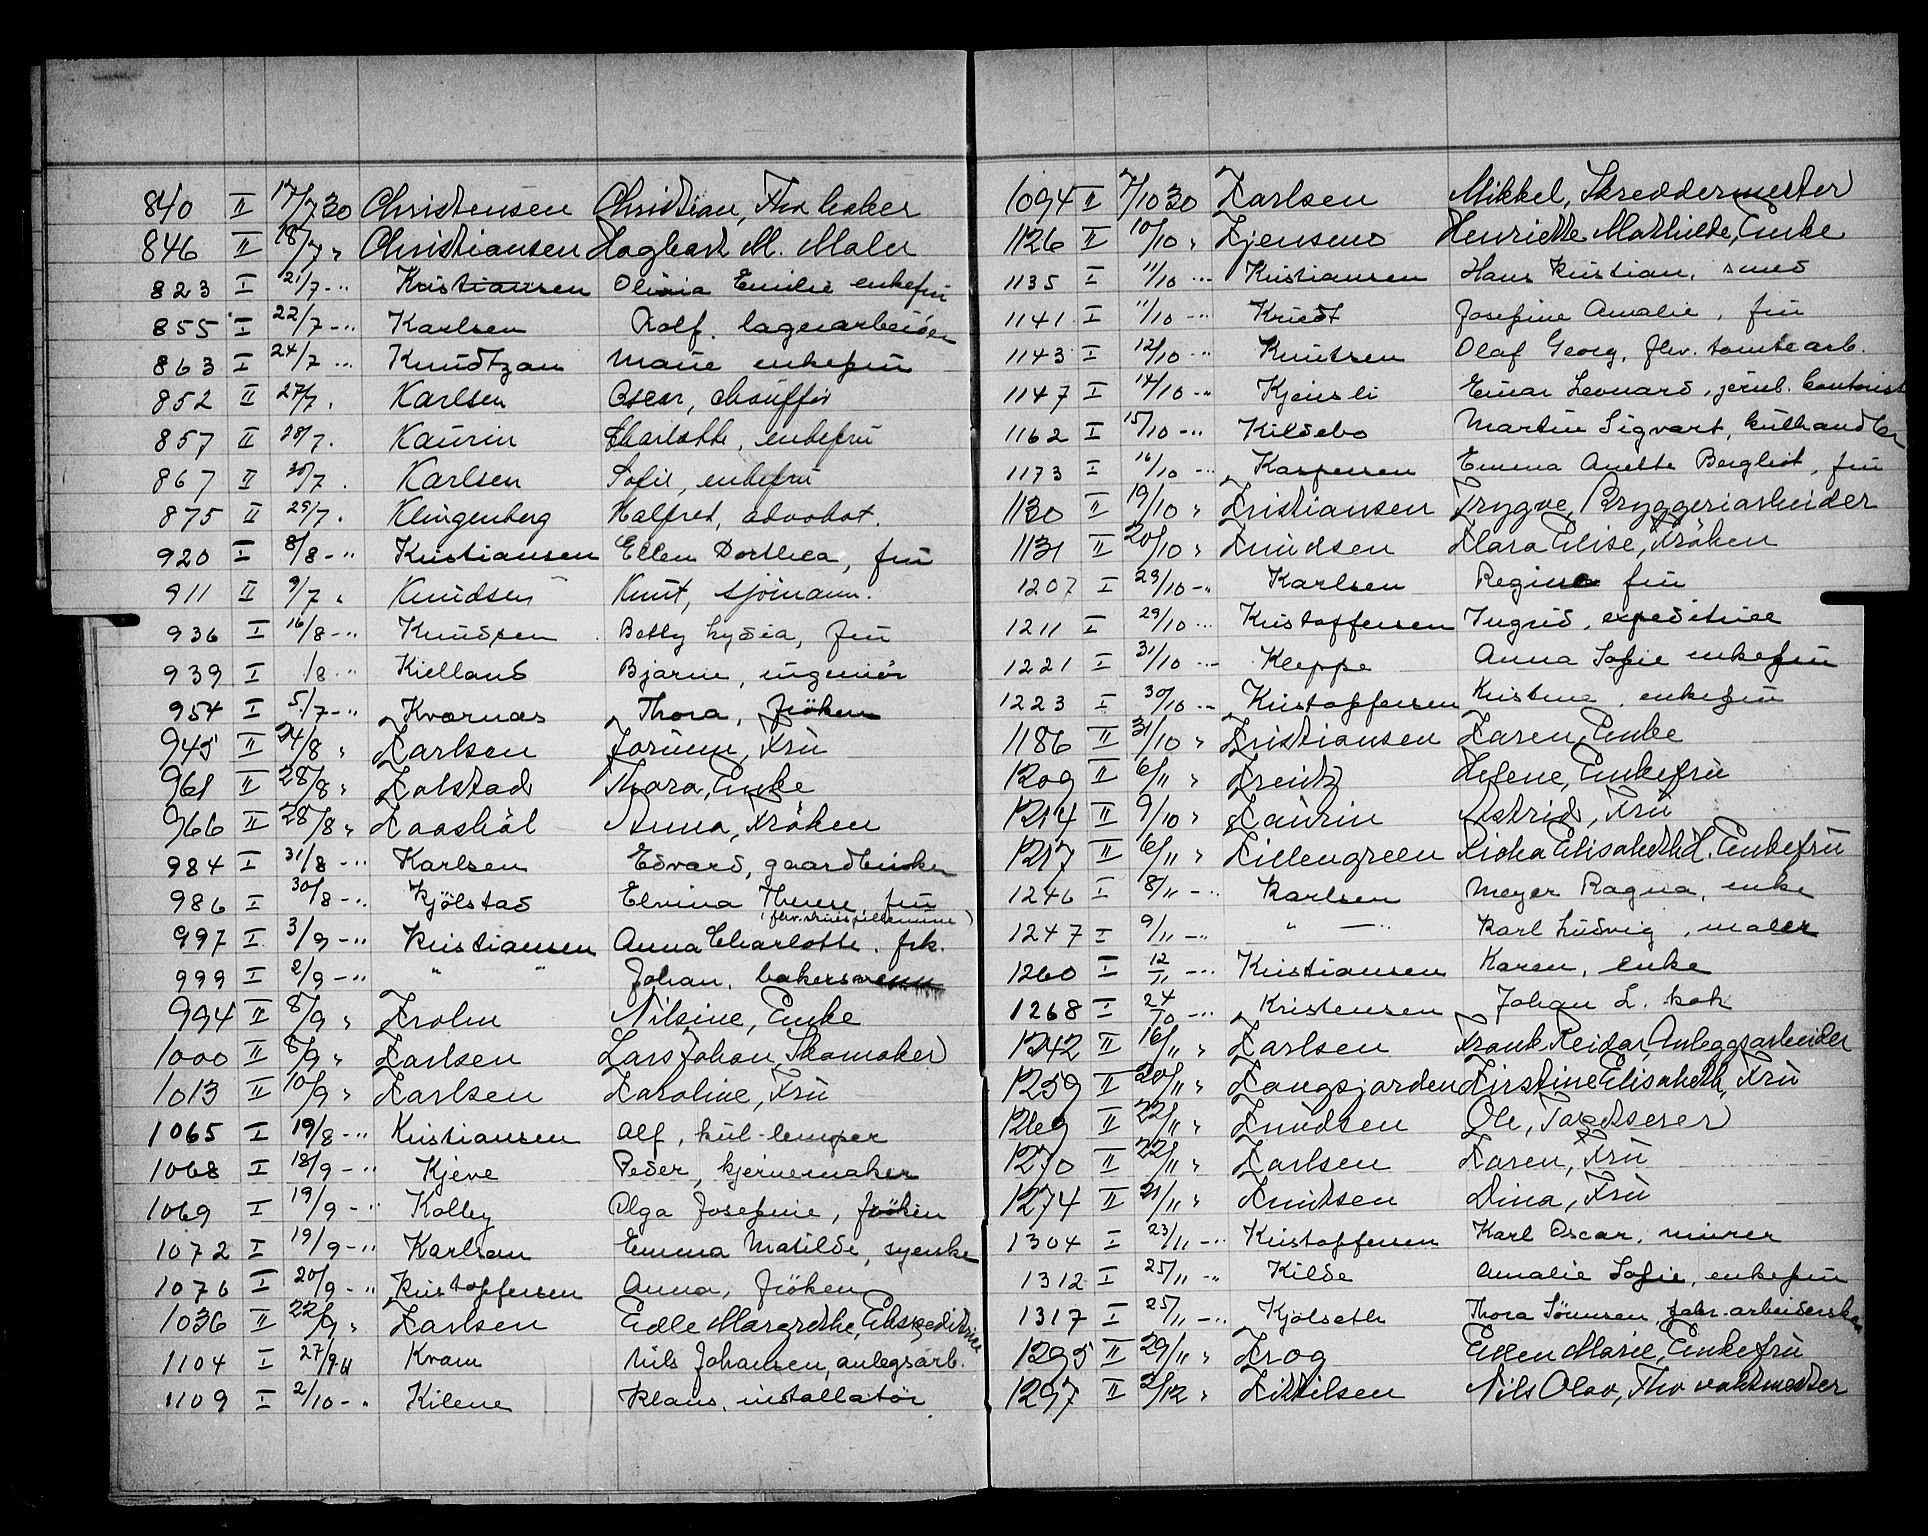 840 II 17/7 30 Christensen Christian, Fhv baker
846 II 18/7 " Christiansen Hagbart M. Maler
823 I 21/7 -"- Kristiansen Olivia Emilie enkefru
855 I 22/7 -"- Karlsen Rolf. lagerarbeider
863 I 24/7 -"- Knudtzon Marie enkefru
852 II 27/7 . Karlsen Oscar, chauffør
857 II 28/7 . Kaurin Charlotte, enkefru
867 II 30/7 . Karlsen Sofie, enkefru
875 II 29/7 . Klingenberg Halfred, advokat.
920 I 8/8 -"- Kristiansen Ellen Dorthea, fru
911 II 9/7 " Knudsen Knut, sjömann.
936 I 16/8 -"- Knudsen Betty Lydia, fru
939 I /8 -"- Kielland Bjarne, ingeniör
954 I 5/7 -"- Kvarnæs Thora, fröken
945 II 24/8 " Karlsen Jorunn, Fru
961 II 28/8 " Kolstad Thora, Enke
966 II 28/8 " Kaashöl Anna, Fröken
984 I 31/8 -"- Karlsen Edvard, gaardbruker
986 I 30/8 -"- Kjölstad Elvina Therese, fru
997 I 3/9 -"- Kristiansen Anna Charlotte. frk.
999 I 2/9 -"- " " Johan. bakersvenn
994 II 8/9 " Krohn Nilsine, Enke
1000 II 8/9 " Karlsen Lars Johan, Skomaker
1013 II 10/9 " Karlsen Karoline, Fru
1065 I 19/8 -"- Kristiansen Alf, kul-lemper
1068 I 18/9 -"- Kjeve Peder, kjernemaker
1069 I 19/9 -"- Kolby Olga Josefine, fröken
1072 I 19/9 -"- Karlsen Emma Matilde, syerske
1076 I 20/9 -"- Kristoffersen Anna, fröken
1036 II 22/9 " Karlsen Edle Margrethe, Ekspeditrice
1104 I 27/9 Kvam Nils Johansen, anlegsarb.
1109 I 2/10 -"- Kilene Klaus, installatör
1094 II 7/10 30 Karlsen Mikkel, Skreddermester
1126 II 10/10 " Kjensmo Henriette Mathilde, Enke
1135 I 11/10 -"- Kristiansen Hans Kristian, smed
1141 I 11/10 -"- Kriedt Josefine Amalie, fru
1143 I 12/10 -"- Knutsen Olaf Georg, fhv. tomtearb.
1147 I 14/10 -"- Kjensli Einar Leonard, jernb. kontorist
1162 I 15/10 -"- Kildebo Martin Sigvart, kulhandler
1173 I 16/10 -"- Kaspersen Emma Anette Bergliot, fru
1130 II 19/10 " Kristiansen Trygve, Bryggeriarbeider
1131 II 20/10 " Knudsen Klara Elise, Fröken
1207 I 29/10 -"- Karlsen Regine fru
1211 I 29/10 -"- Kristoffersen Ingrid, expeditrice
1221 I 31/10 -"- Kleppe Anna Sofie enkefru
1223 I 30/10 -"- Kristoffersen Kristine, enkefru
1186 II 31/10 " Kristiansen Karen, Enke
1209 II 6/11 " Kreutz Helene, Enkefru
1214 II 9/10 " Kaurin Astrid, Fru
1217 II 6/11 " Killengreen Ricka Elisabeth H. Enkefru
1246 I 8/11 -"- Karlsen Meyer Ragna, enke
1247 I 9/11 -"- " -"- Karl Ludvig, maler
1260 I 12/11 -"- Kristiansen Karen, enke
1268 I 24/10 -"- Kristensen Johan L. kok
1242 II 16/11 " Karlsen Frank Reidar, Anleggsarbeider
1259 II 20/11 " Kongsjorden Kirstine Elisabeth, Fru
1269 II 22/11 " Knudsen Ole,
1270 II 22/11 " Karlsen Karen, Fru
1274 II 21/11 " Knutsen Dina, Fru
1304 I 23/11 -"- Kristoffersen Karl Oscar, murer
1312 I 25/11 -"- Kilde Amalie Sofie, enkefru
1317 I 25/11 -"- Kjölseth Thora Sörensen, fabr. arbeiderske
1295 II 29/11 " Krog Ellen Marie, Enkefru
1297 II 2/12 " Kittilsen Nils Olav, Fhv vaktmester